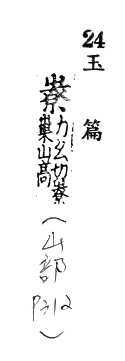 24 玉篇
嶚 力幺切嶚
巢山高
(山部 P312)